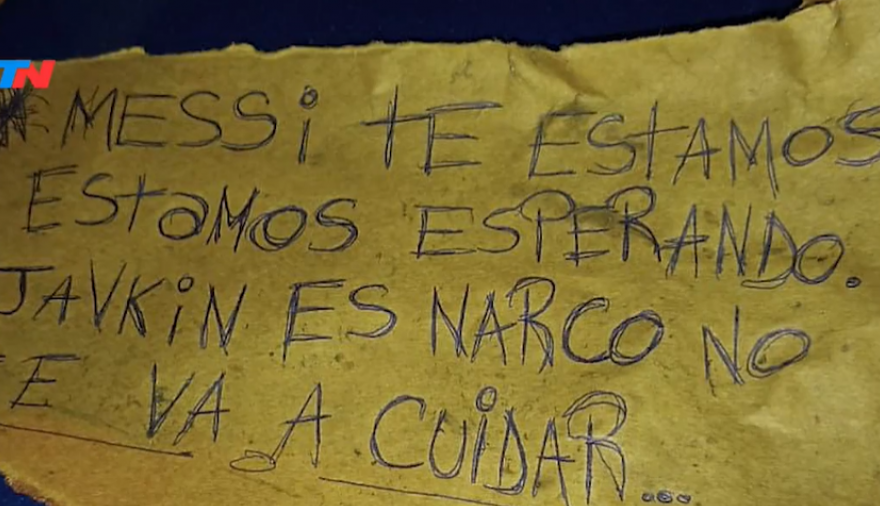 TN
MESSi tE EStAMOS
EStaMOS ESPERANDO.
JAVKiN ES NARCO NO
tE VA A CUiDAR...